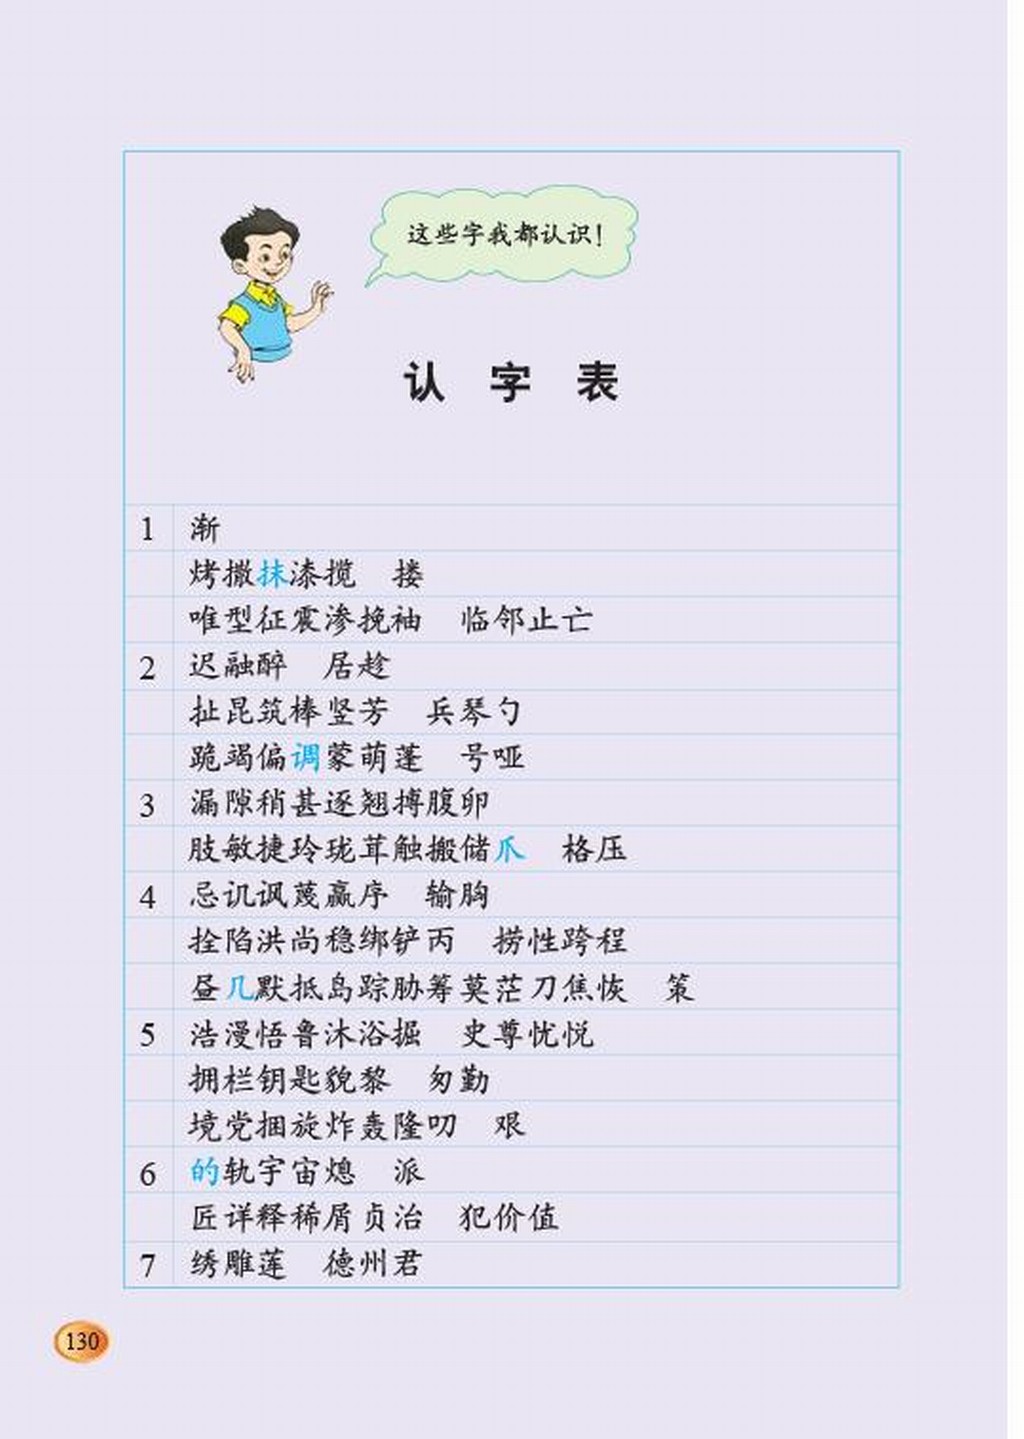 这些字我都认识!
认 字 表
1 渐
烤撒抹漆揽 搂
唯型征震渗挽袖 临邻止亡
2 迟融醉 居趁
扯昆筑棒竖芳 兵琴勺
跪竭偏调蒙萌蓬 号哑
3 漏隙稍甚逐翘搏腹卵
肢敏捷玲珑茸触搬储爪 格压
4 忌讥讽蔑赢序 输胸
拴陷洪尚稳绑铲丙 捞性跨程
昼几默抵岛踪胁筹莫茫刀焦恢 策
5 浩漫悟鲁沐浴掘 史尊忧悦
拥栏钥匙貌黎 匆勤
境党捆旋炸轰隆叨 艰
6 的轨宇宙熄 派
匠详释稀屑贞治 犯价值
7 绣雕莲 德州君
130